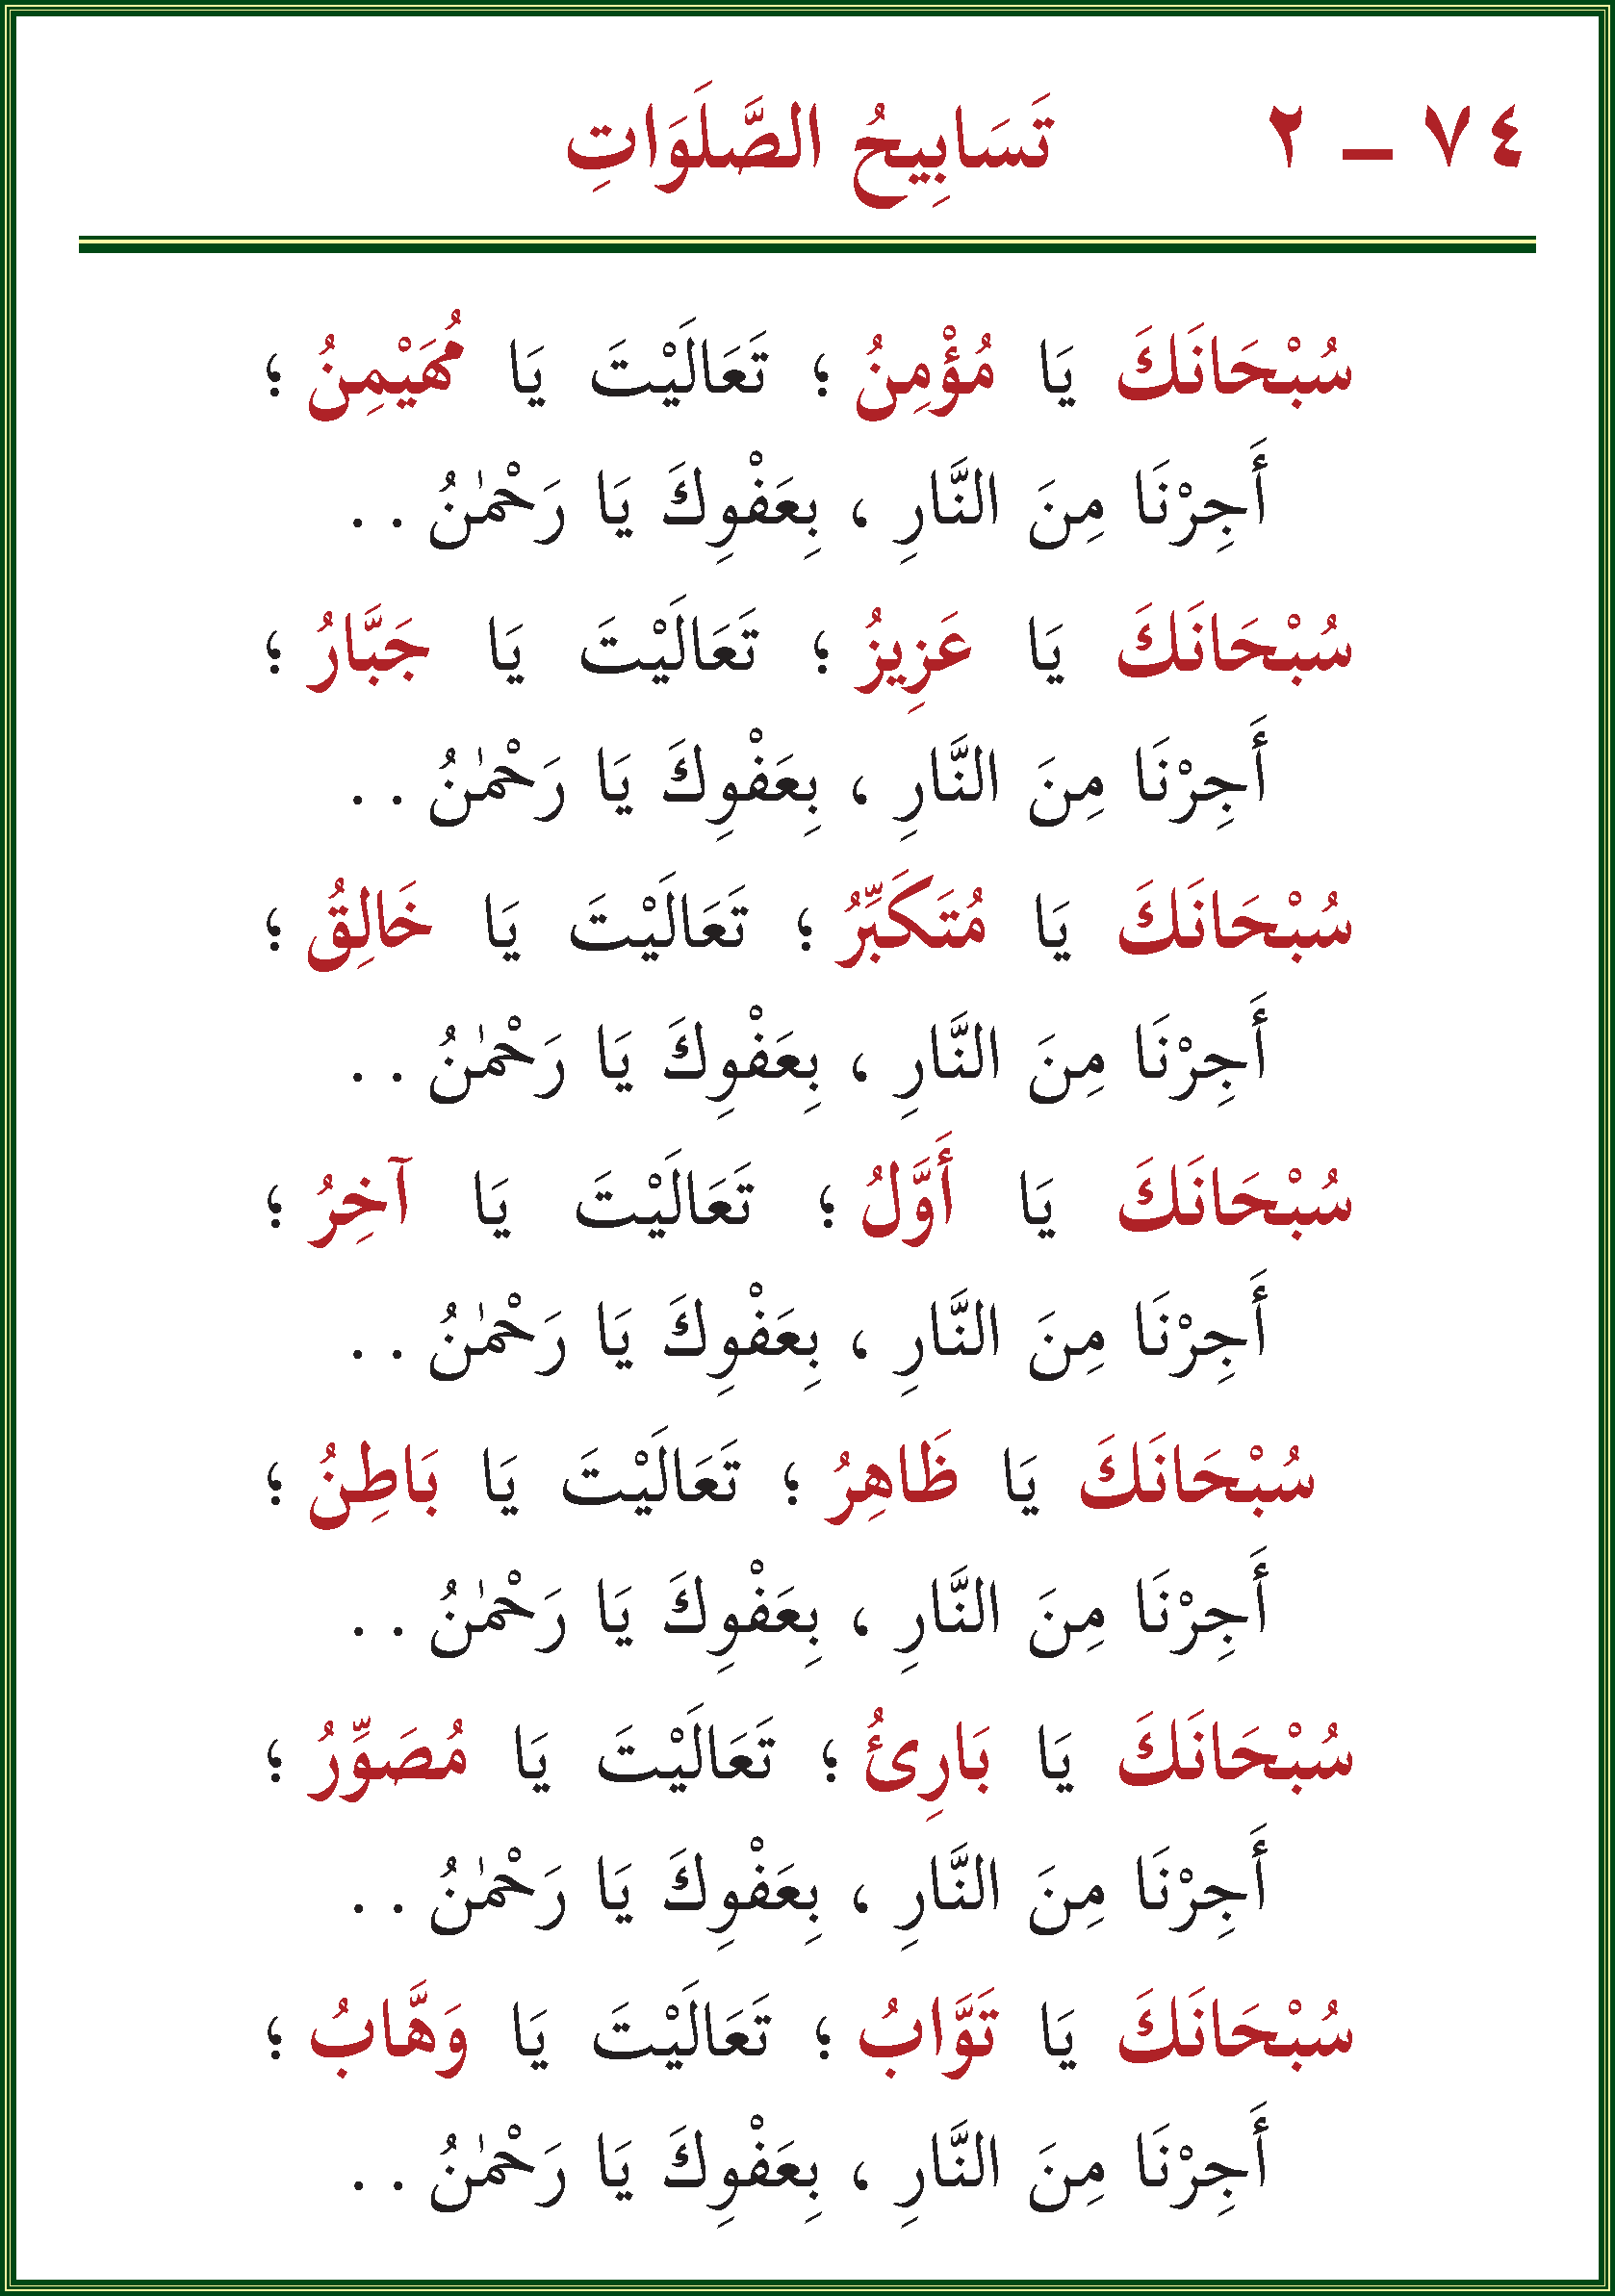 ٧٤ – ٢ تَسَابِيحُ الصَّلَوَاتِ
سُبْحَانَكَ يَا مُؤْمِنُ ؛ تَعَالَيْتَ يَا مُهَيْمِنُ ؛
أَجِرْنَا مِنَ النَّارِ ، بِعَفْوِكَ يَا رَحْمٰنُ . .
سُبْحَانَكَ يَا عَزِيزُ ؛ تَعَالَيْتَ يَا جَبَّارُ ؛
أَجِرْنَا مِنَ النَّارِ ، بِعَفْوِكَ يَا رَحْمٰنُ . .
سُبْحَانَكَ يَا مُتَكَبِّرُ ؛ تَعَالَيْتَ يَا خَالِقُ ؛
أَجِرْنَا مِنَ النَّارِ ، بِعَفْوِكَ يَا رَحْمٰنُ . .
سُبْحَانَكَ يَا أَوَّلُ ؛ تَعَالَيْتَ يَا آخِرُ ؛
أَجِرْنَا مِنَ النَّارِ ، بِعَفْوِكَ يَا رَحْمٰنُ . .
سُبْحَانَكَ يَا ظَاهِرُ ؛ تَعَالَيْتَ يَا بَاطِنُ ؛
أَجِرْنَا مِنَ النَّارِ ، بِعَفْوِكَ يَا رَحْمٰنُ . .
سُبْحَانَكَ يَا بَارِئُ ؛ تَعَالَيْتَ يَا مُصَوِّرُ ؛
أَجِرْنَا مِنَ النَّارِ ، بِعَفْوِكَ يَا رَحْمٰنُ . .
سُبْحَانَكَ يَا تَوَّابُ ؛ تَعَالَيْتَ يَا وَهَّابُ ؛
أَجِرْنَا مِنَ النَّارِ ، بِعَفْوِكَ يَا رَحْمٰنُ . .